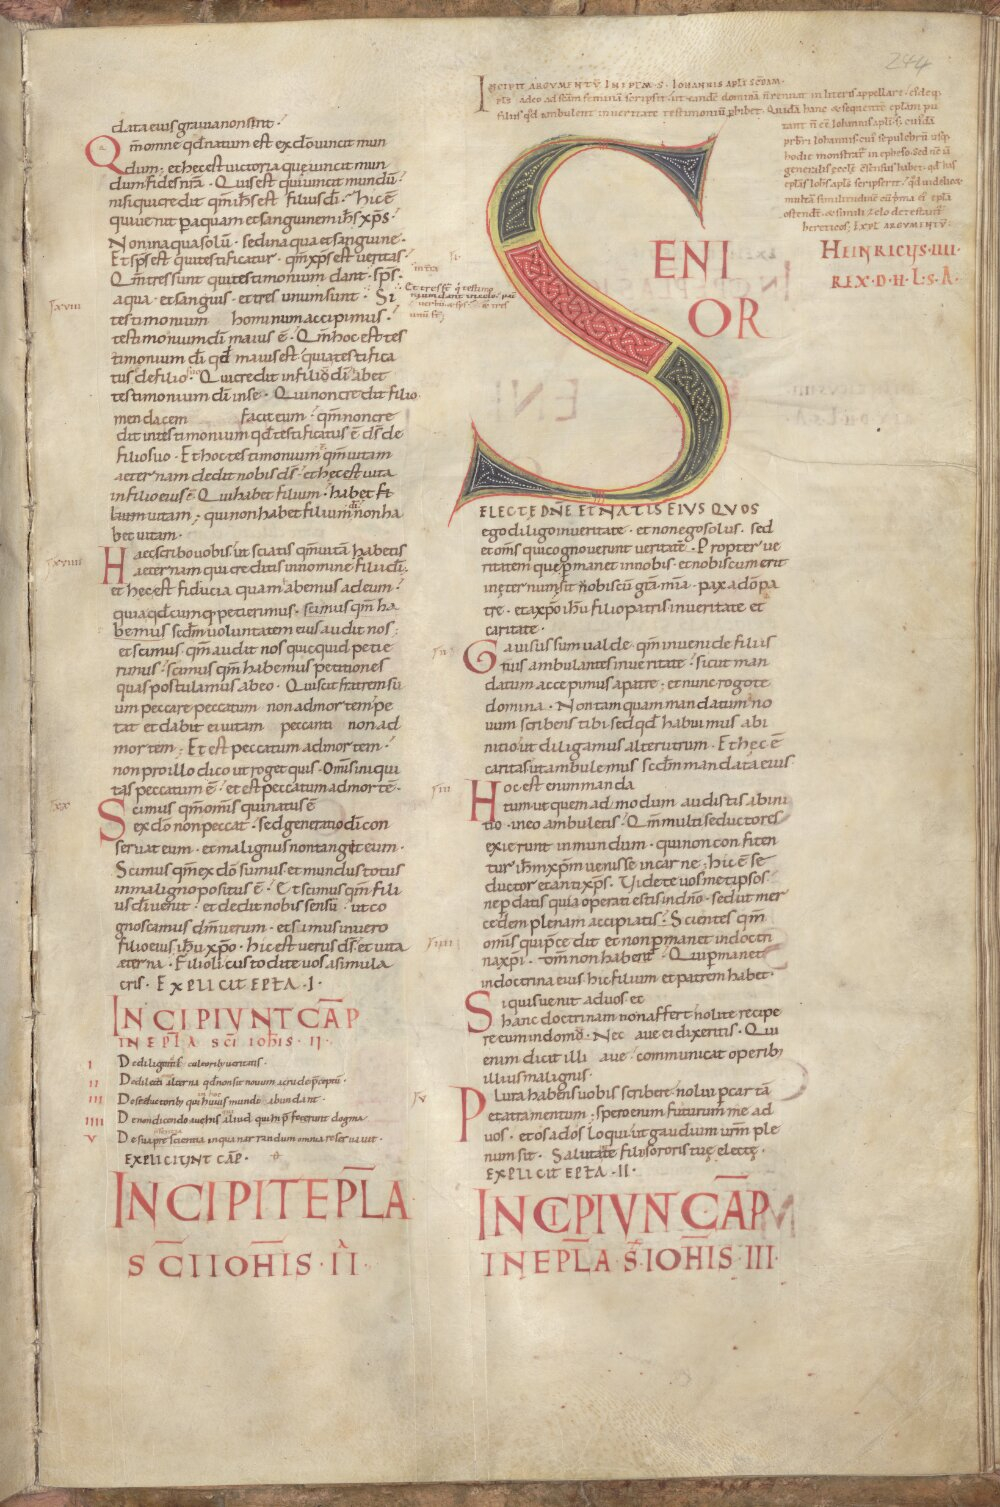 244
data eius gravia non sunt·
Qm̄ omne qd̄ natum est ex dō vincit mun
dum· et hec est victoria que vincit mun
dum fides nr̄a· Quis est qui vincit mundū·
nisi qui credit qm̄ ih̄s est filius dī· hic ē
qui venit p aquam et sanguinem ih̄s xp̄s·
Non in aqua solū· sed in aqua et sanguine·
Et sp̄s est qui testificatur· qm̄ xp̄s est veritas·
Qm̄ tres sunt qui testimonium dant· sp̄s·
aqua· et sanguis· et tres unum sunt· Si
testimonium hominum accipimus·
testimonium dī maius ē· Qm̄ hoc est tes
timonium dī qd̄ maius est· quia testifica
tus de filio suo· Qui credit in filiō dī abet
testimonium dī in se· Qui non credit filio
mendacem facit eum· qm̄ non cre
dit in testimonium qd̄ testificatus ē ds̄ de
filio suo· Et hoc testimonium qm̄ vitam
aeternam dedit nobis ds̄· et hec est vita
in filio eius ē· Qui habet filium· habet fi
lium vitam· qui non habet filium dī non ha
bet vitam·
Haec scribo vobis ut sciatis qm̄ vitā habetis
aeternam qui creditis in nomine filii dī·
et hec est fiducia quam abemus ad eum·
quia qd̄cumq petierimus· scimus qm̄ ha
bemus scdm̄ voluntatem eius audit nos·
et scimus qm̄ audit nos quicquid petie
rimus· scimus qm̄ habemus petitiones
quas postulamus ab eo· Qui scit fratrem su
um peccare peccatum non ad mortem pe
tat et dabit ei vitam peccanti non ad
mortem· Et est peccatum ad mortem·
non pro illo dico ut roget quis· Omīs iniqui
tas peccatum ē· et est peccatum ad mortē·
Scimus qm̄ omīs qui natus ē
ex dō non peccat· sed generatio dī con
servat eum· et malignus non tangit eum·
Scimus qm̄ ex dō sumus· et mundus totus
in maligno positus ē· Et scimus qm̄ fili
us dī venit· et dedit nobis sensū· ut co
gnoscamus dm̄ verum· et simus in vero
filio eius ih̄u xp̄o· hic est verus ds̄· et vita
aeterna· Filioli custodite vos a simula
cris· EXPLICIT EPL̄A·I·
INCIPIUNT CAP̄
IN EPL̄A SC̄I IOHIS·II·
I De diligentib· cultorib· veritatis·
II De dilecti alterna qd̄ non sit novum a᷒ rude p̄ceptū·
III De seductorib; qui in hoc mundo abundant·
IIII De non dicendo avehis aliud quip p̄ fecerunt dogma·
V De suapte scientia in qua narrandum omnia reservavit·
EXPLICIUNT CAP̄·
INCIPIT EPL̄A
SC̄I IOHIS·II·
INCIPIT ARGUMENTŪ IN EPLM·S·IOHANNIS APL̄I SCD̄AM·
filius qd̄ ambulent in veritate testimoniū p̄hibet· Quidā hanc & sequentē ep̄lam pu
tant n̄ eē Iohannis apl̄i· s; cuidā
prb̄ri Iohannis· cui᷒ sepulchrū usq;
hodie monstrat᷒ in epheso· Sed nē ū
generalis eccl̄ę c̄sensus habet· qd̄ has
ep̄las Ioh̄s apl̄s scripserit·
hereticos; EXPL ARGUMENTŪ·
HEINRICUS·IIII·
REX·D·H·L·S·A·
SENI
OR
ELECTE DN̄E ET NATIS EIUS QUOS
ego diligo in veritate· et non ego solus· sed
et om̄s qui cognoverunt veritatē· Propter ve
ritatem que p̄manet in nobis· et nobiscum erit
in ęternum· sit nobiscū gr̄a· mīa· pax a dō pa
tre· et a xp̄o ih̄u filio patris in veritate et
caritate·
Gavisus sum valde· qm̄ inveni de filiis
tuis ambulantes in veritate· sicut man
datum accepimus a patre· et nunc rogo te
domina· Non tamquam mandatum no
vum scribens tibi· sed qd̄ habuimus ab i
nitio· ut diligamus alterutrum· Et hec ē
caritas ut ambulemus scdm̄ mandata eius
Hoc est enim manda
tum ut quem admodum audistis ab ini
tio· in eo ambuletis· Qm̄ multi seductores
exierunt in mundum· qui non confiten
tur ih̄m xp̄m venisse in carne· hic ē se
ductor et anti xp̄s· Videte vosmetipsos
ne pdatis quia operati estis in dn̄o· sed ut mer
cedem plenam accipiatis· Scientes qm̄
omīs qui p̄cedit et non p̄manet in doctri
na xp̄i· dm̄ non habent· Qui p̄manet
in doctrina eius· hic filium et patrem habet·
Si quis venit ad vos et
hanc doctrinam non affert· nolite recipe
re eum in domū· Nec ave ei dixeritis· Qui
enim dicit illi ave· communicat operib;
illius malignis·
Plura habens vobis scribere· nolui p cartā
et atramentum· spero enim futurum me ad
vos· et os ad os loqui· ut gaudium vrm̄ ple
num sit· Salutate filii sororis tuę electę·
EXPLICIT EPL̄A·II·
INCIPIUNT CAP̄
IN EPL̄A S·IOHIS·III·